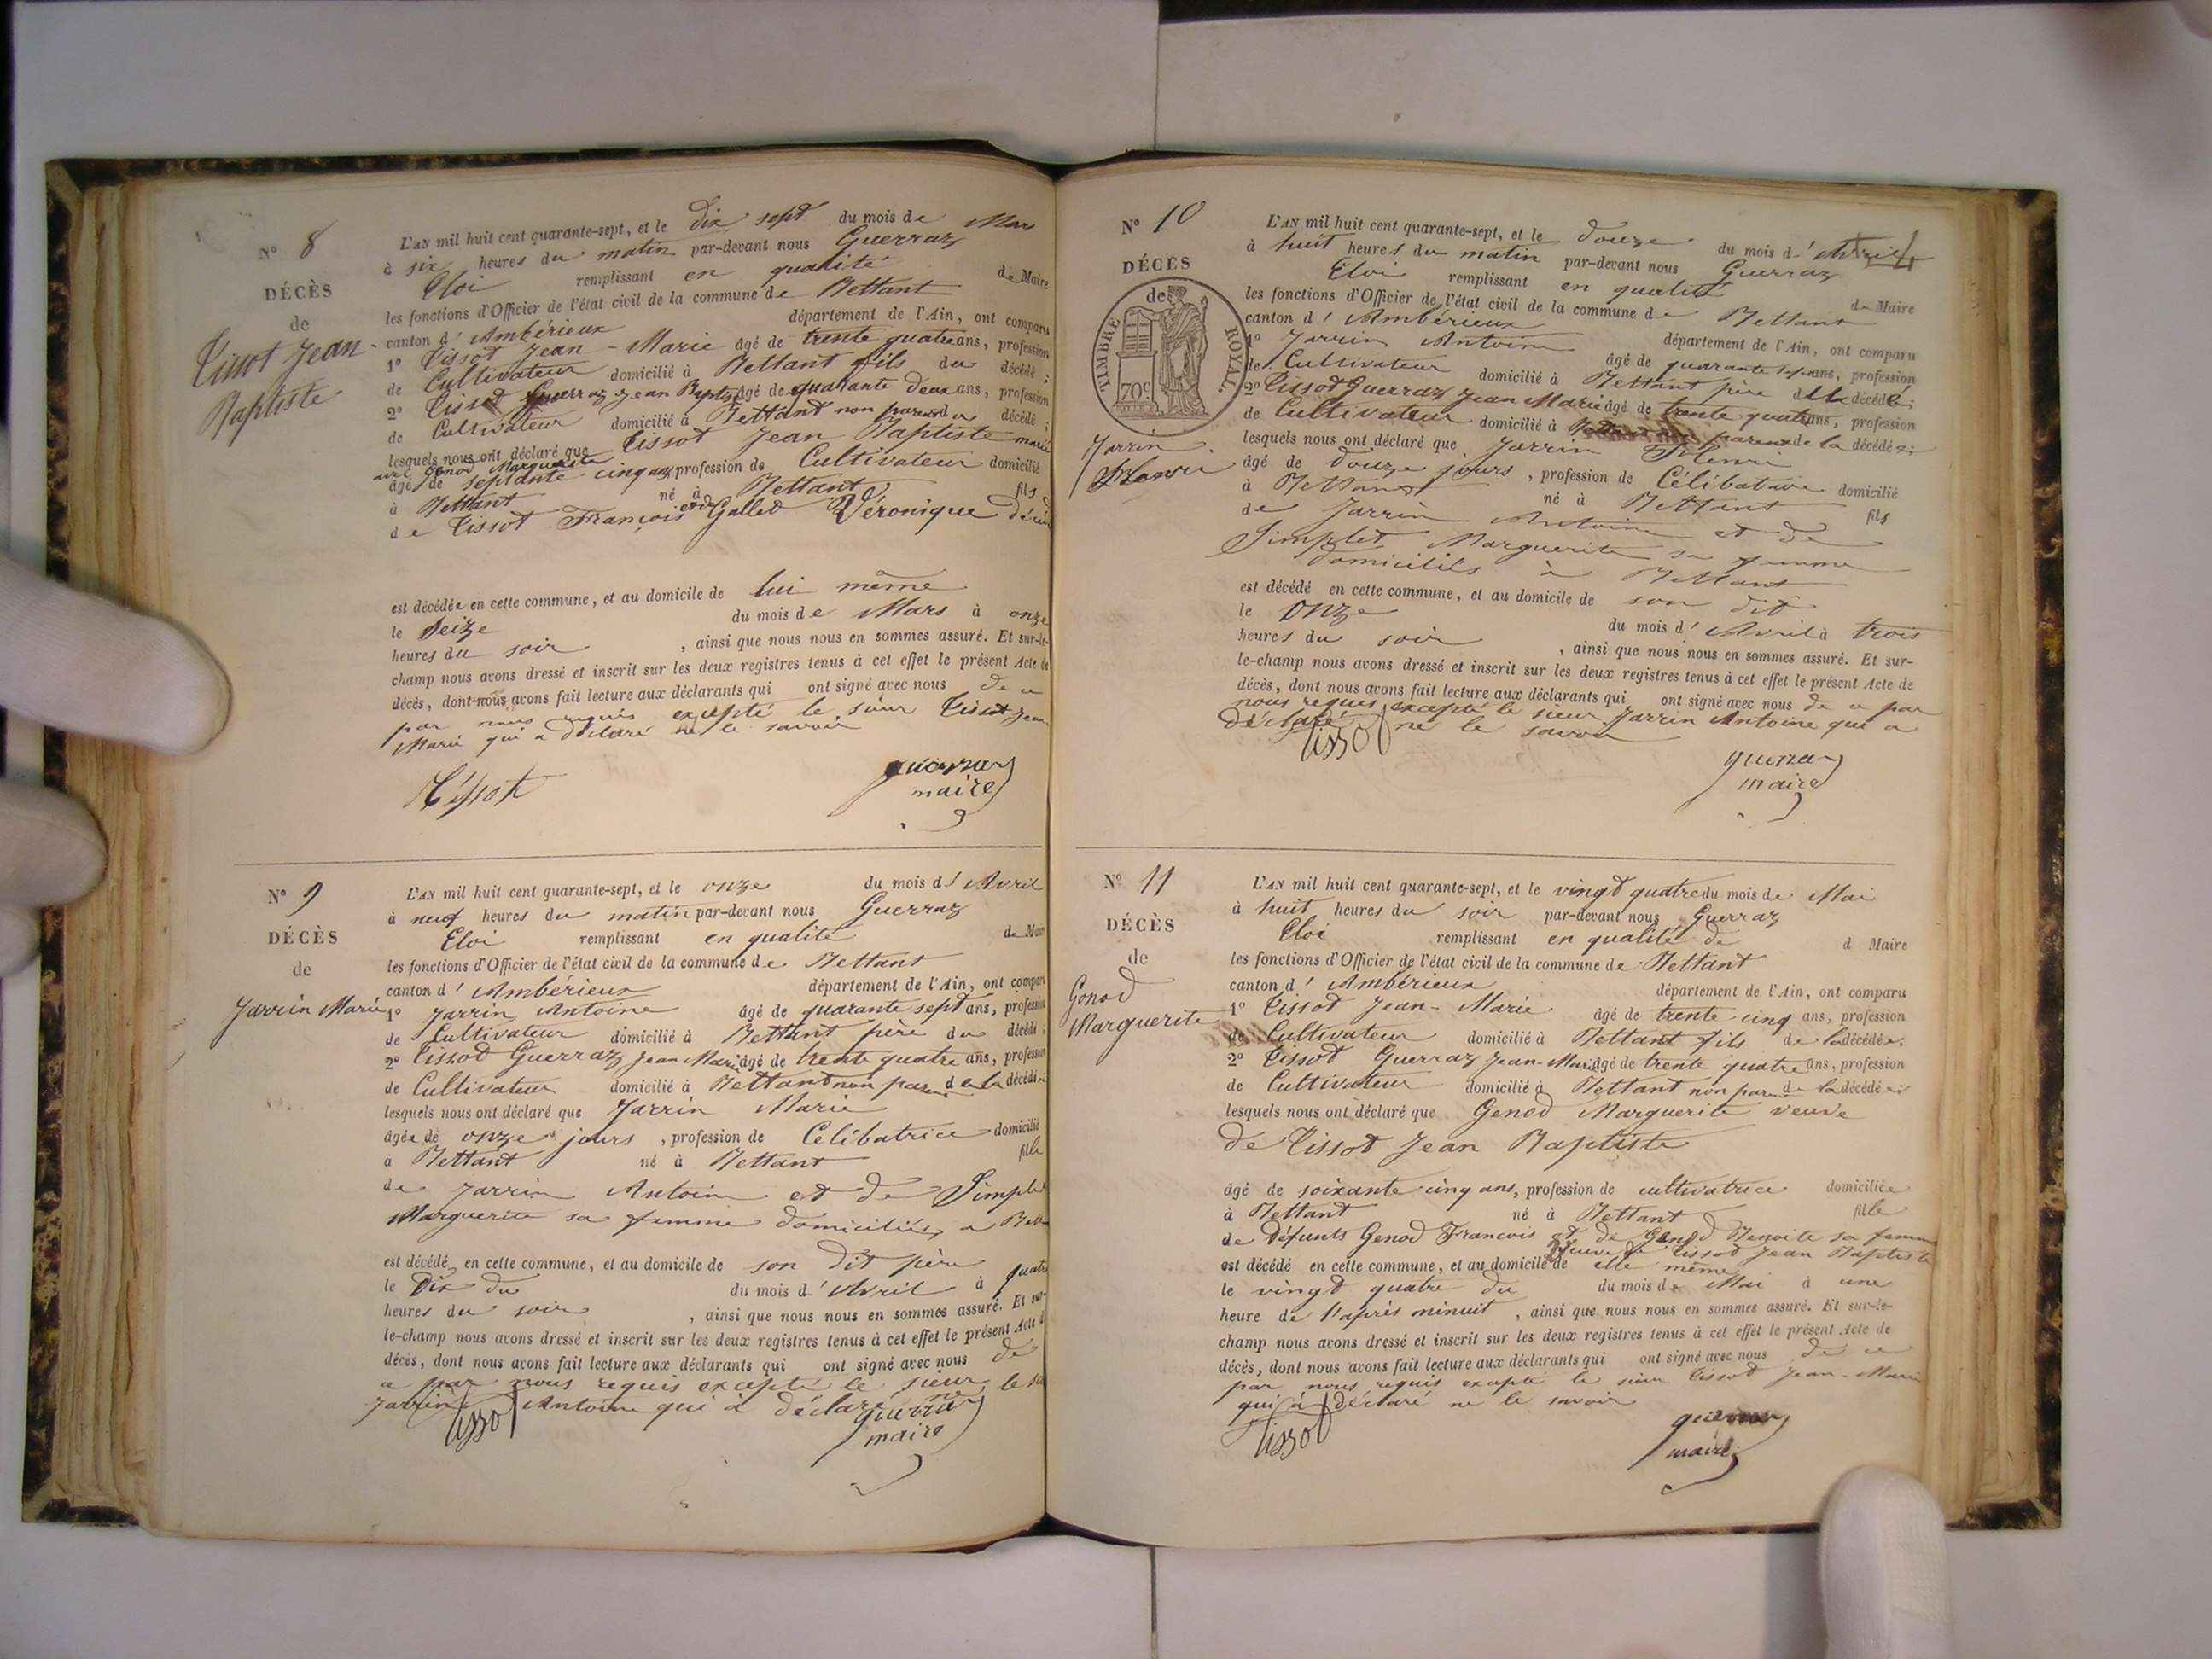 N° 8
DÉCÈS
de
Tissot Jean
Baptiste
L'AN mil huit cent quarante-sept, et le dix sept du mois de Mars
à six heures du matin par-devant nous Guerraz
Eloi remplissant en qualité de Maire
les fonctions d'Officier de l'état civil de la commune de Bettant
canton d' Ambérieux département de l'Ain, ont comparu
1° Tissot Jean - Marie âgé de trente quatre ans, profession
de Cultivateur domicilié à Bettant fils du décédé ;
2° Tissot Guerraz Jean Baptiste âgé de quarante deux ans, profession
de Cultivateur domicilié à Bettant non parent du décédé ;
lesquels nous ont déclaré que Tissot Jean Baptiste marié
avec Genod Marguerite
âgé de septante cinq ans, profession de Cultivateur domicilié
à Bettant né à Bettant fils
de Tissot François et de Gallet Véronique
est décédée en cette commune, et au domicile de lui même
le Seize du mois de Mars à onze
heures du soir , ainsi que nous nous en sommes assuré. Et sur-le-
champ nous avons dressé et inscrit sur les deux registres tenus à cet effet le présent Acte de
décès, dont nous avons fait lecture aux déclarants qui ont signé avec nous de ce
par nous requis excepté le sieur Tissot Jean-
Marie qui a déclaré ne le savoir
Tissot guerraz
maire
N° 9
DÉCÈS
de
Jarrin Marie
L'AN mil huit cent quarante-sept, et le onze du mois d' Avril
à neuf heures du matin par-devant nous Guerraz
Eloi remplissant en qualité de Maire
les fonctions d'Officier de l'état civil de la commune de Bettant
canton d' Ambérieux département de l'Ain, ont comparu
1° Jarrin Antoine âgé de quarante sept ans, profession
de Cultivateur domicilié à Bettant père du décédé ;
2° Tissot Guerraz Jean Marie âgé de trente quatre ans, profession
de Cultivateur domicilié à Bettant non parent de la décédée
lesquels nous ont déclaré que Jarrin Marie
âgée de onze jours , profession de Célibatrice domicilié
à Bettant né à Bettant fille
de Jarrin Antoine et de Simplet
Marguerite sa femme domiciliés a Bettant
est décédé en cette commune, et au domicile de son dit père
le Dix du du mois d' Avril à quatre
heures du soir , ainsi que nous nous en sommes assuré. Et sur-
le-champ nous avons dressé et inscrit sur les deux registres tenus à cet effet le présent Acte de
décès, dont nous avons fait lecture aux déclarants qui ont signé avec nous de
ce par nous requis excepté le sieur
Jarrin Antoine qui a déclaré ne le
Tissot guerraz
maire
N° 10
DÉCÈS
de
TIMBRE ROYAL
70c
Jarrin
Henri
L'AN mil huit cent quarante-sept, et le douze du mois d' Avril
à huit heures du matin par-devant nous Guerraz
Eloi remplissant en qualité de Maire
les fonctions d'Officier de l'état civil de la commune de Bettant
canton d' Ambérieux département de l'Ain, ont comparu
1° Jarrin Antoine âgé de quarante sept ans, profession
de Cultivateur domicilié à Bettant père du décédé ;
2° Tissot Guerraz Jean Marie âgé de trente quatre ans, profession
de Cultivateur domicilié à parent de la décédée ;
lesquels nous ont déclaré que Jarrin Henri
âgé de douze jours , profession de Célibataire domicilié
à Bettant né à Bettant fils
de Jarrin Antoine et de
Simplet Marguerite sa femme
domiciliés à Bettant
est décédé en cette commune, et au domicile de son dit
le onze du mois d' Avril à trois
heures du soir , ainsi que nous nous en sommes assuré. Et sur-
le-champ nous avons dressé et inscrit sur les deux registres tenus à cet effet le présent Acte de
décès, dont nous avons fait lecture aux déclarants qui ont signé avec nous de ce par
nous requis excepté le sieur Jarrin Antoine qui a
déclaré ne le savoir
Tissot guerraz
maire
N° 11
DÉCÈS
de
Genod
Marguerite
L'AN mil huit cent quarante-sept, et le vingt quatre du mois de Mai
à huit heures du soir par-devant nous Guerraz
Eloi remplissant en qualité de d Maire
les fonctions d'Officier de l'état civil de la commune de Bettant
canton d' Ambérieux département de l'Ain, ont comparu
1° Tissot Jean-Marie âgé de trente cinq ans, profession
de Cultivateur domicilié à Bettant fils de la décédée ;
2° Tissot Guerraz Jean-Marie âgé de trente quatre ans, profession
de Cultivateur domicilié à Bettant non parent de la décédée ;
lesquels nous ont déclaré que Genod Marguerite veuve
de Tissot Jean Baptiste
âgé de soixante cinq ans, profession de cultivatrice domiciliée
à Bettant né à Bettant fille
de Défunts Genod Francois et de Genod Benoite sa femme
veuve de Tissot Jean Baptiste
est décédé en cette commune, et au domicile de elle même
le vingt quatre du du mois de Mai à une
heure de l'après minuit , ainsi que nous nous en sommes assuré. Et sur-le-
champ nous avons dressé et inscrit sur les deux registres tenus à cet effet le présent Acte de
décès, dont nous avons fait lecture aux déclarants qui ont signé avec nous de ce
par nous requis excepté le sieur Tissot Jean-Marie
qui a déclaré ne le savoir
Tissot guerraz
maire